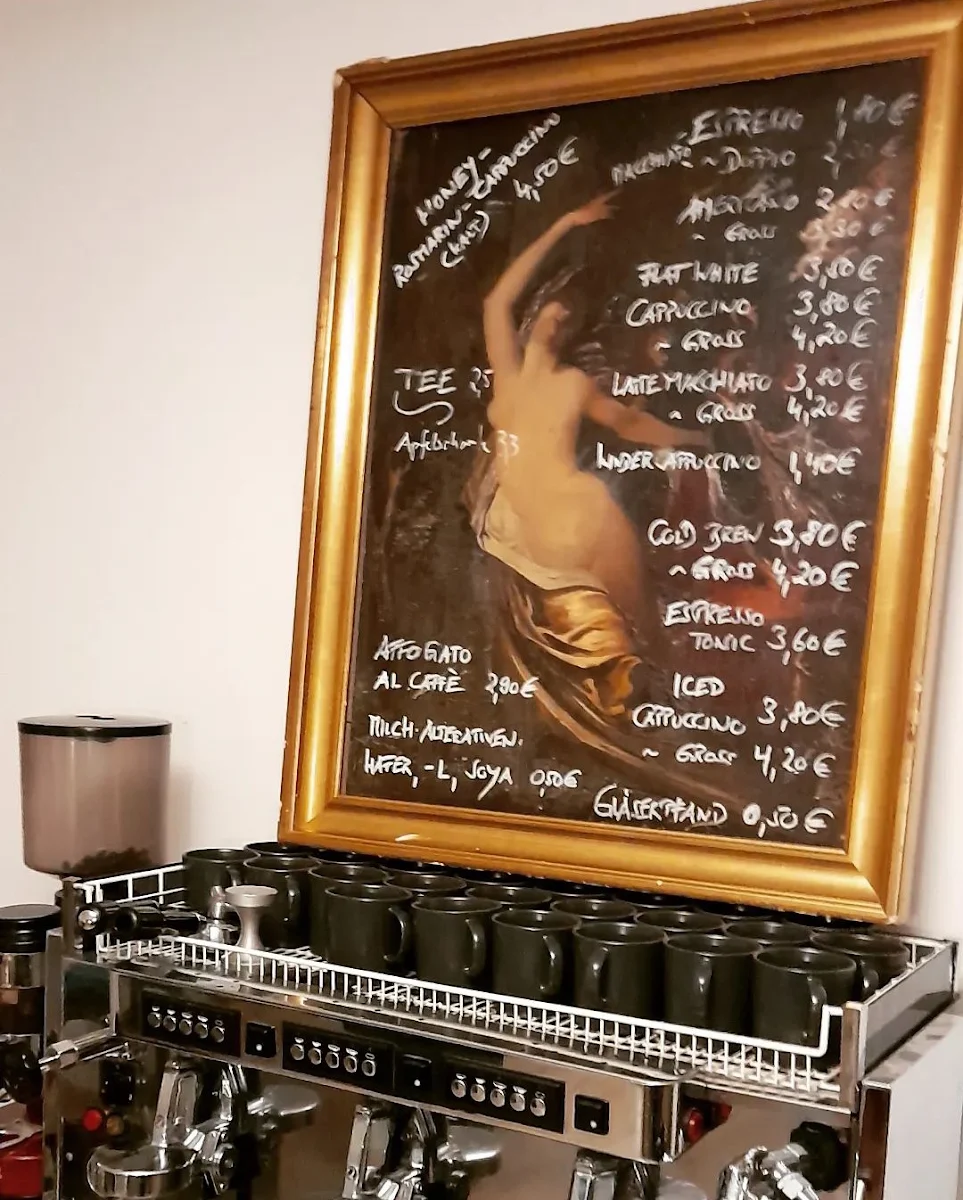 HONEY-
CAPPUCCINO
ROSMARIN-
(KALT) 4,50€
TEE
Apfelschorle 33
AFFOGATO
AL CAFFÈ 2,90€
MILCH-ALTERATIVEN.
HAFER, -L, SOYA 0,50€
ESPRESSO 1,80€
MACCHIATO ~ DOPPIO
AMERICANO 2,80€
~ GROSS 3,30€
FLAT WHITE 3,80€
CAPPUCCINO 3,80€
~ GROSS 4,20€
LATTE MACCHIATO 3,80€
~ GROSS 4,20€
KINDERCAPPUCCINO 1,40€
COLD BREW 3,80€
~ GROSS 4,20€
ESPRESSO
TONIC 3,60€
ICED
CAPPUCCINO 3,80€
~ GROSS 4,20€
GLÄSERPFAND 0,50€